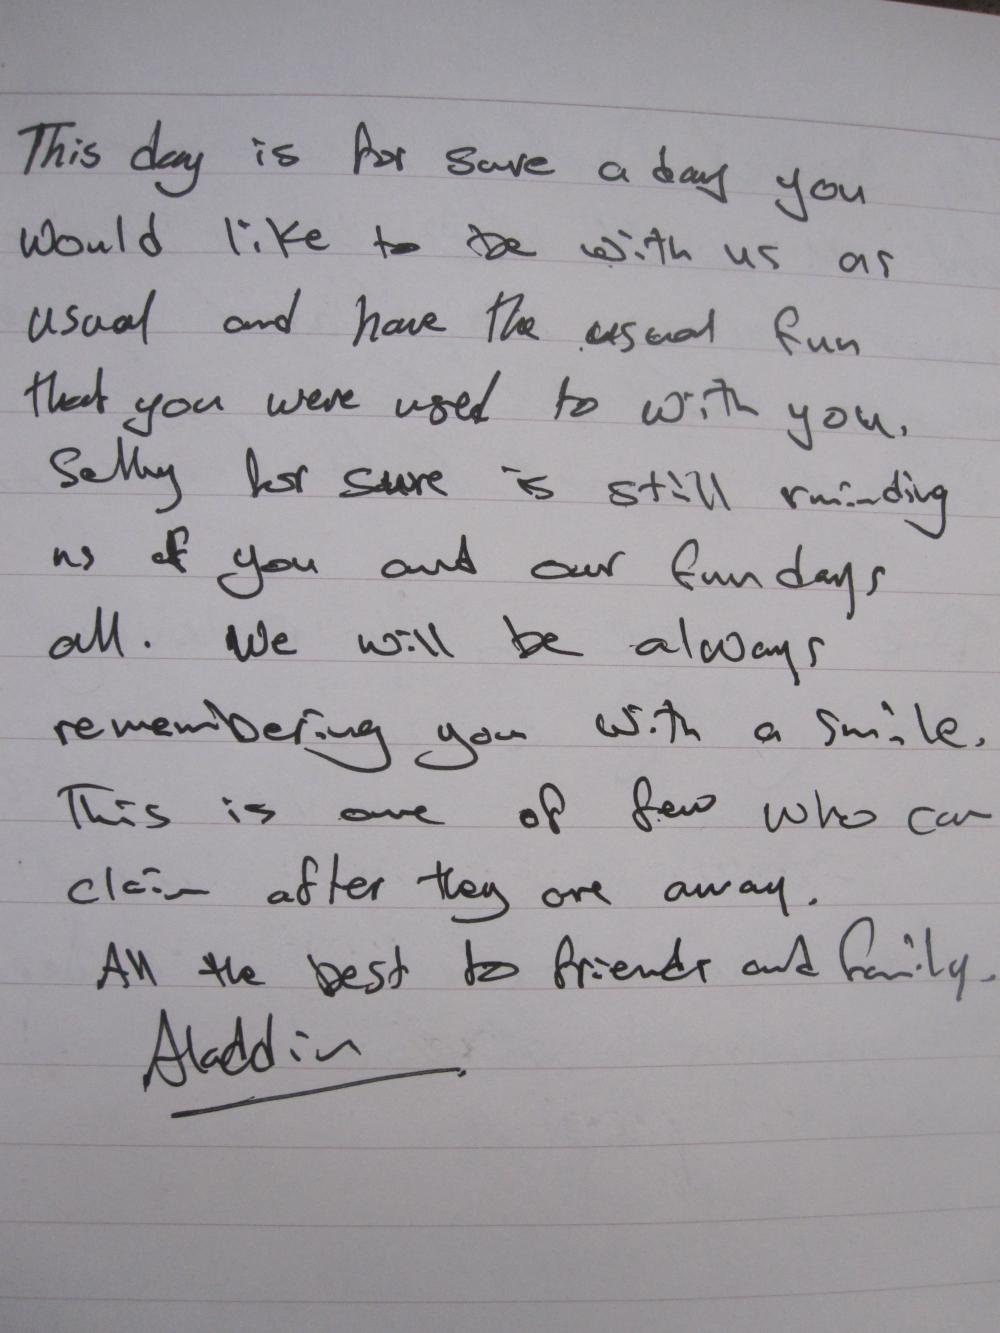 This day is for sure a day you
would like to be with us as
usual and have the usual fun
that you were used to with you.
for sure is still rminding
us of you and our fun days
all. We will be always
remembering you with a smile.
This is one of few who can
claim after they are away.
All the best to friends and family.
Aladdin